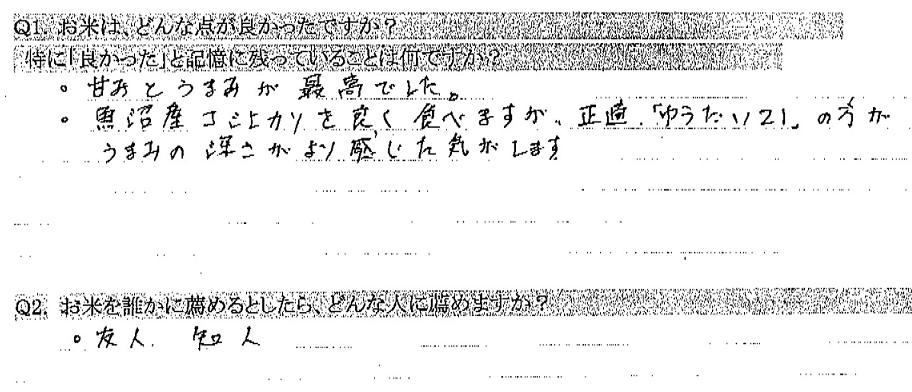 Q1. お米は、どんな点が良かったですか?
特に「良かった」と記憶に残っていることは何ですか?
。甘みとうまみが最高でした。
。魚沼産コシヒカリを良く食べますが、正直、「ゆうだい21」の方が
うまみの深さがより感じた気がします
Q2. お米を誰かに薦めるとしたら、どんな人に薦めますか?
。友人、知人